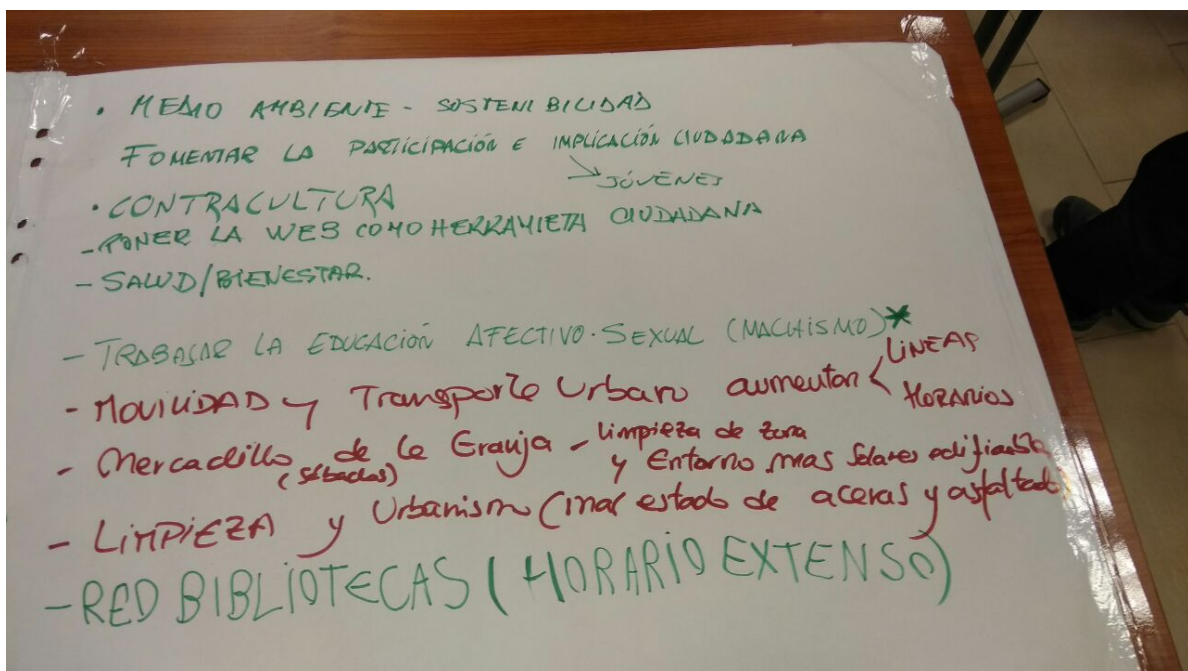 • MEDIO AMBIENTE - SOSTENIBILIDAD
FOMENTAR LA PARTICIPACIÓN E IMPLICACIÓN CIUDADANA
JÓVENES
• CONTRACULTURA
- PONER LA WEB COMO HERRAMIETA CIUDADANA
- SALUD/BIENESTAR.
- TRABAJAR LA EDUCACIÓN AFECTIVO-SEXUAL (MACHISMO)*
- MOVILIDAD y Transporte Urbano aumentar < LINEAS
HORARIOS
- Mercadillo de la Granja - limpieza de zona
(sábados) y Entorno mas Solares
- LIMPIEZA y Urbanismo (mal estado de aceras y asfaltado)
- RED BIBLIOTECAS (HORARIO EXTENSO)